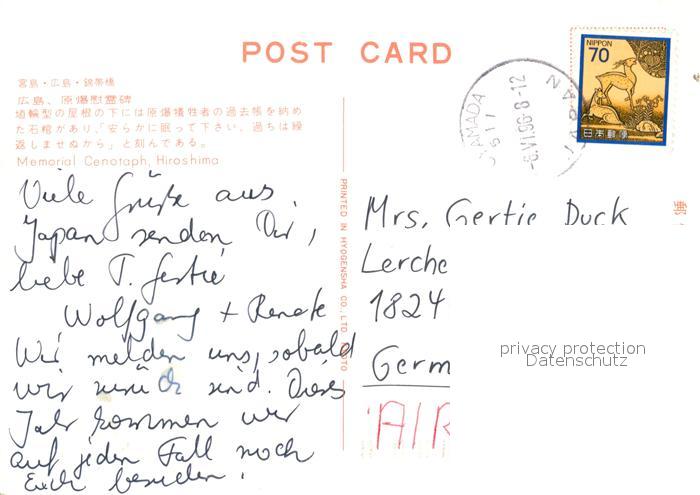 POST CARD
NIPPON
70
日本郵便
YAMADA
517
-6.VI.96.8-12
JAPAN
宮島・広島・錦帯橋
広島、原爆慰霊碑
埴輪型の屋根の下には原爆犠牲者の過去帳を納め
た石棺があり、「安らかに眠って下さい。過ちは繰
返しませぬから」と刻んである。
Memorial Cenotaph, Hiroshima
Viele Grüße aus
Japan senden Dir,
liebe T. Gertie
Wolfgang + Renate
Wir melden uns, sobald
wir zurück sind. Dieses
Jahr kommen wir
auf jeden Fall noch
Euch besuchen.
PRINTED IN HYOGENSHA CO., LTD. KYOTO
Mrs. Gertie Duck
Lerche
1824
Germ
AIR
郵
privacy protection
Datenschutz